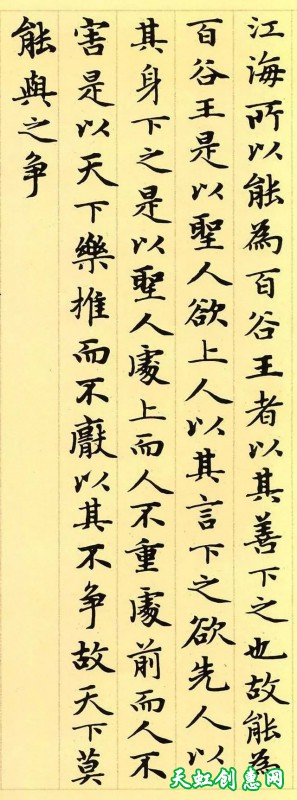 江海所以能為百谷王者以其善下之也故能為
百谷王是以聖人欲上人以其言下之欲先人以
其身下之是以聖人處上而人不重處前而人不
害是以天下樂推而不厭以其不争故天下莫
能與之争
天虹创惠网